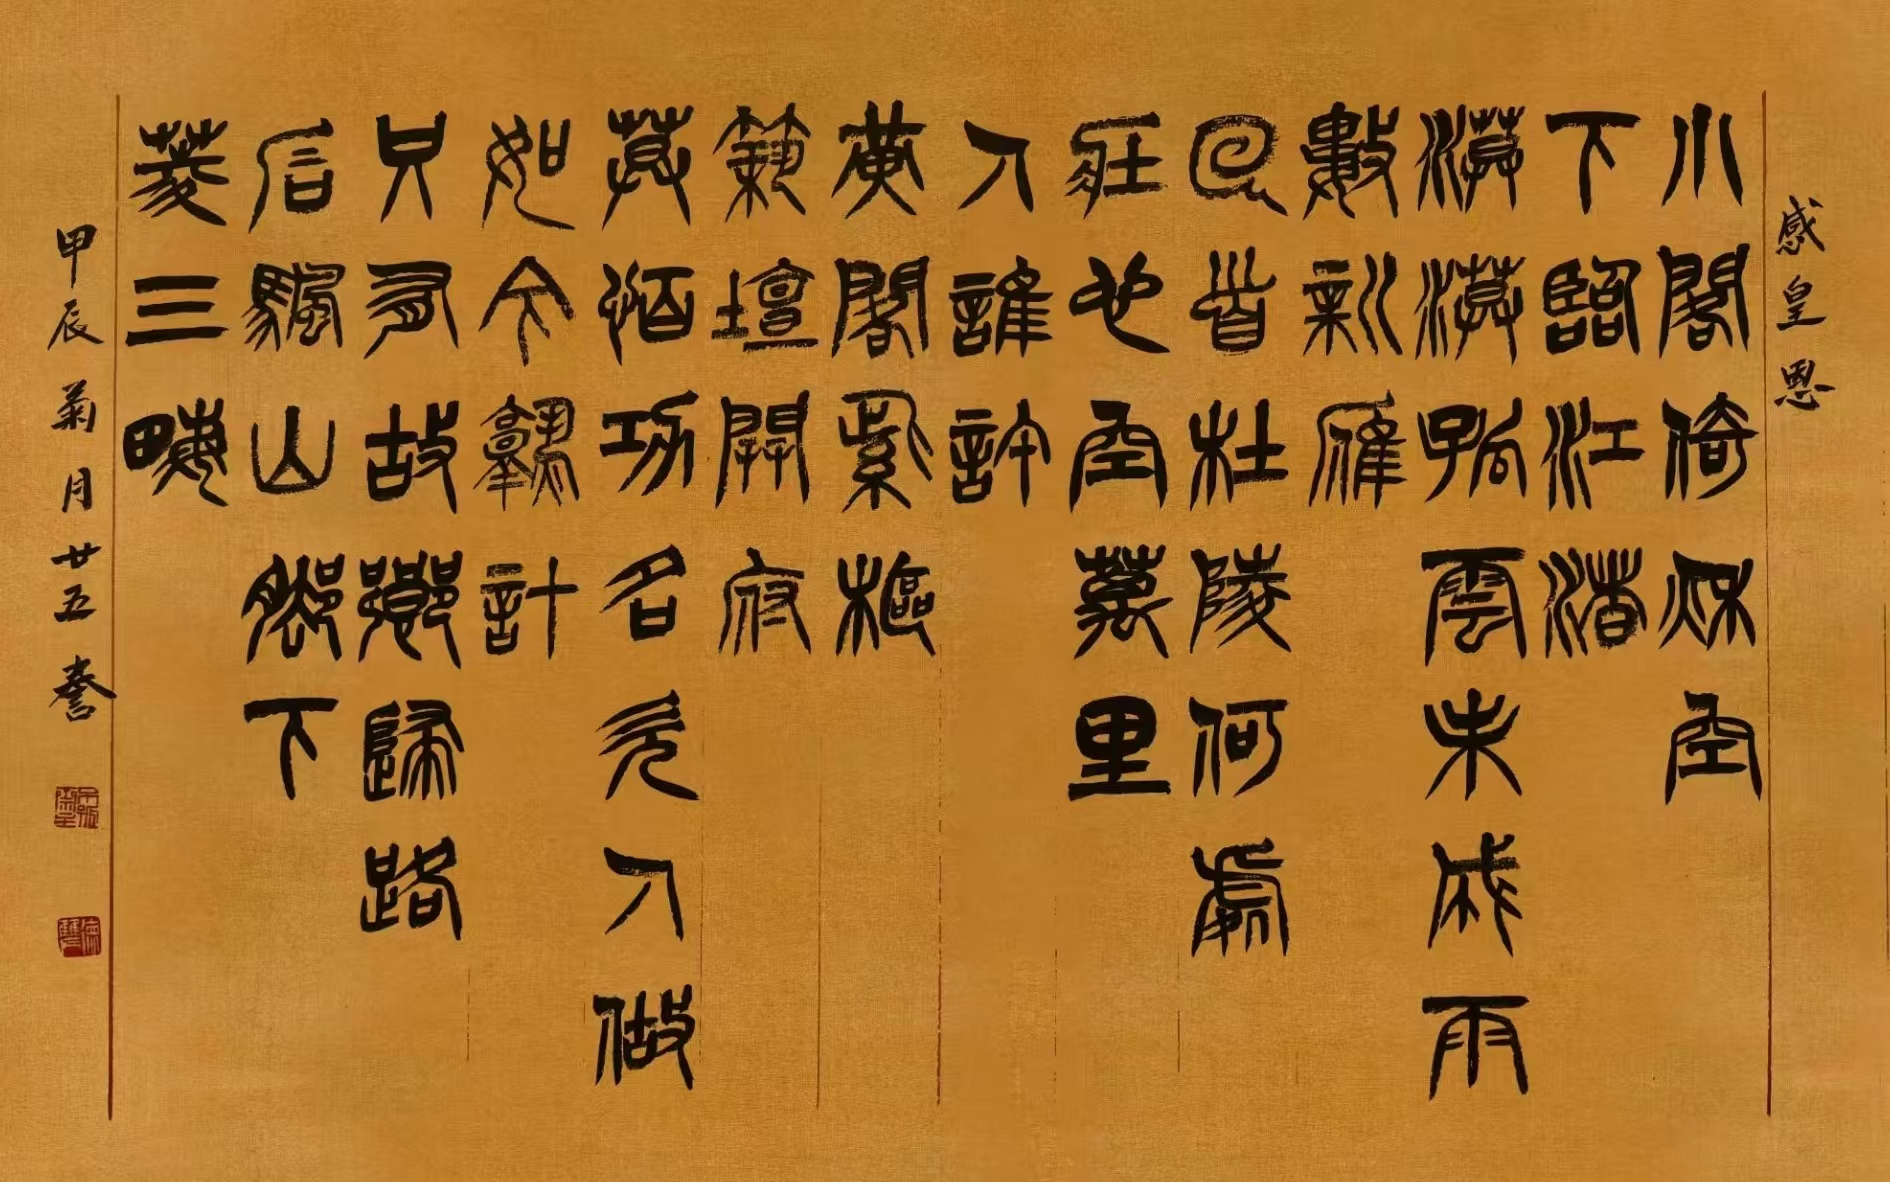 感皇恩
小閣倚秋空
下臨江渚
漠漠孤雲未成雨
數新雁
回首杜陵何處
壯心空萬里
人誰許
黃閣紫樞
築壇開府
莫怕功名欠人做
如今熟計
只有故鄉歸路
石帆山腳下
菱三畝
甲辰菊月廿五